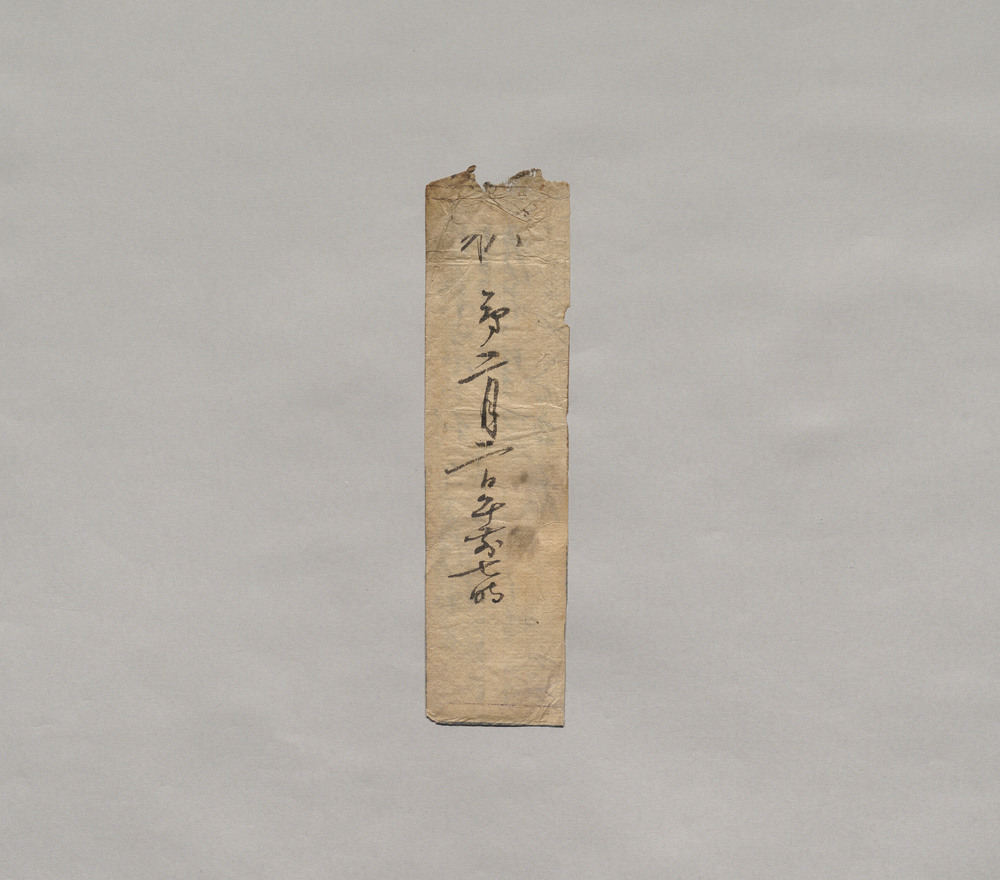 第二月二日午前七時